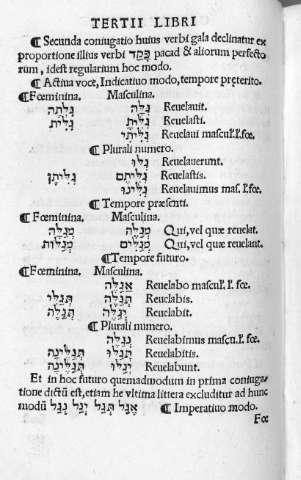 TERTII LIBRI
¶ Secunda coniugatio huius verbi gala declinatur ex
proportione illius verbi פָּקַד pacad & aliorum perfecto
rum, idest regularium hoc modo.
¶ Actiua voce, Indicatiuo modo, tempore pręterito.
¶ Fœminina. Masculina.
גִּלְּתָה גִּלָּה Reuelauit.
גִּלִּית גִּלִּיתָ Reuelasti.
גִּלִּיתִי Reuelaui mascul.l.fœ.
¶ Plurali numero.
גִּלּוּ Reuelauerunt.
גִּלִּיתֶן גִּלִּיתֶם Reuelastis.
גִּלִּינוּ Reuelauimus mas.l.fœ.
¶ Tempore præsenti.
¶ Fœminina. Masculina.
מְגַלָּה מְגַלֶּה Qui, vel quæ reuelat.
מְגַלּוֹת מְגַלִּים Qui, vel quæ reuelant.
¶ Tempore futuro.
¶ Fœminina. Masculina.
אֲגַלֶּה Reuelabo mascul.l.fœ.
תְּגַלִּי תְּגַלֶּה Reuelabis.
תְּגַלֶּה יְגַלֶּה Reuelabit.
¶ Plurali numero.
נְגַלֶּה Reuelabimus mascu.l.fœ.
תְּגַלֶּינָה תְּגַלּוּ Reuelabitis.
תְּגַלֶּינָה יְגַלּוּ Reuelabunt.
Et in hoc futuro quemadmodum in prima coniuga
tione dictū est, etiam he vltima littera excluditur ad hunc
modū אֲגַל תְּגַל יְגַל נְגַל ¶ Imperatiuo modo.
Fœ